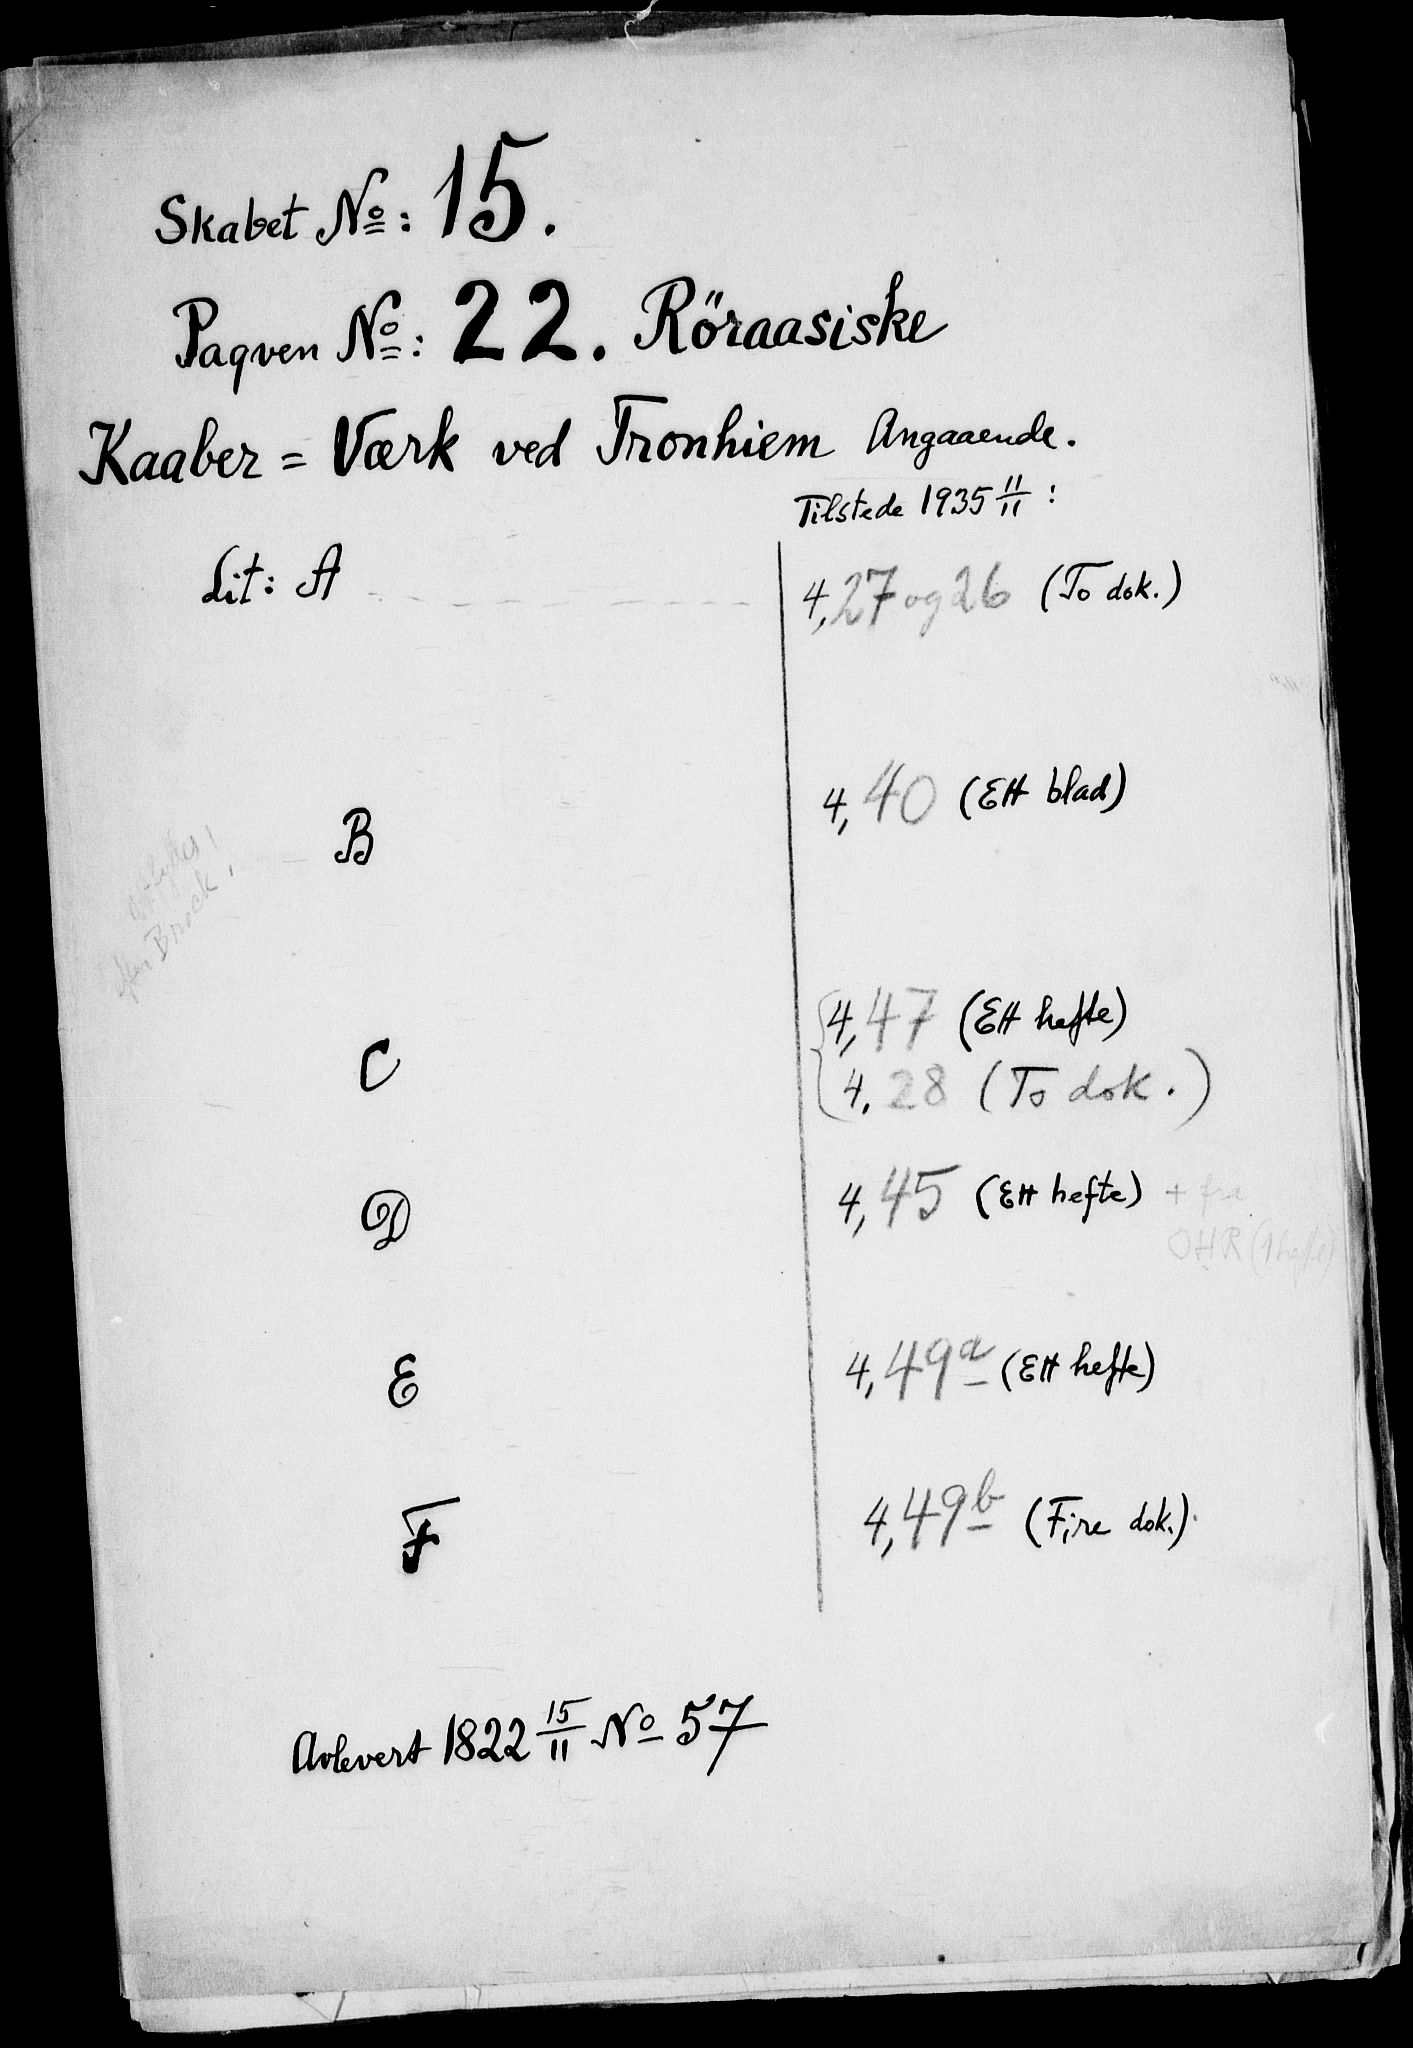 Skabet No: 15.
Paqven No: 22. Röraasiske
Kaaber = Værk ved Tronhiem Angaaende.
Tilstede 1935 11/11 :
Lit: A 4,27 og 26 (To dok.)
B 4,40 (Ett blad)
Brock!
C 4,47 (Ett hefte)
4.28 (To dok.)
D 4,45 (Ett hefte) + fra
OHR (1 hefte)
E 4,49a (Ett hefte)
F 4,49b (Fire dok.)
Avlevert 1822 15/11 No 57